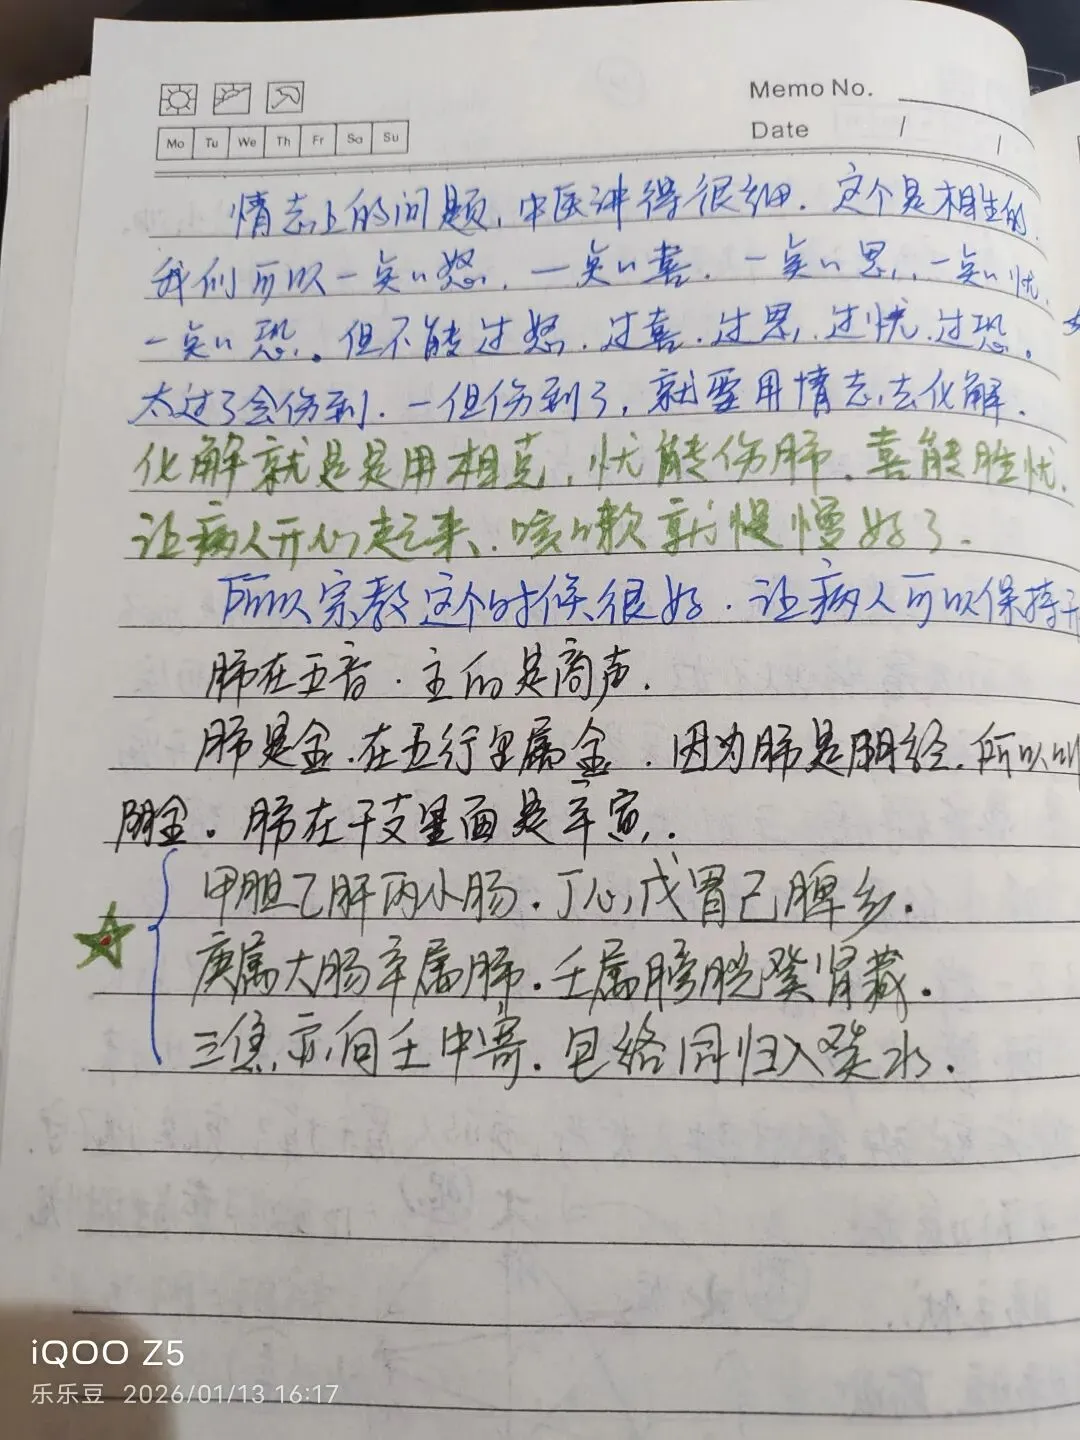 Memo No.
Mo Tu We Th Fr Sa Su
Date / /
情志上的问题,中医讲得很细.这个是相生的.
我们可以一点い怒,一点い喜,一点い思,一点い忧,
一点い恐。但不能过怒.过喜.过思,过忧.过恐。
太过了会伤到.一但伤到了,就要用情志去化解.
化解就是是用相克,忧能伤肺.喜能胜忧.
让病人开心起来、咳嗽就慢慢好了.
所以宗教这个时候很好.让病人可以保持开
肺在五音.主的是商声.
肺是金.在五行里属金.因为肺是阴经.所以叫
阴金。肺在干支里面是辛寅.
甲胆乙肝丙小肠.丁心戊胃己脾乡.
庚属大肠辛属肺.壬属膀胱癸肾藏.
三焦亦向壬中寄.包络同归入癸水.
iQOO Z5
乐乐豆 2026/01/13 16:17